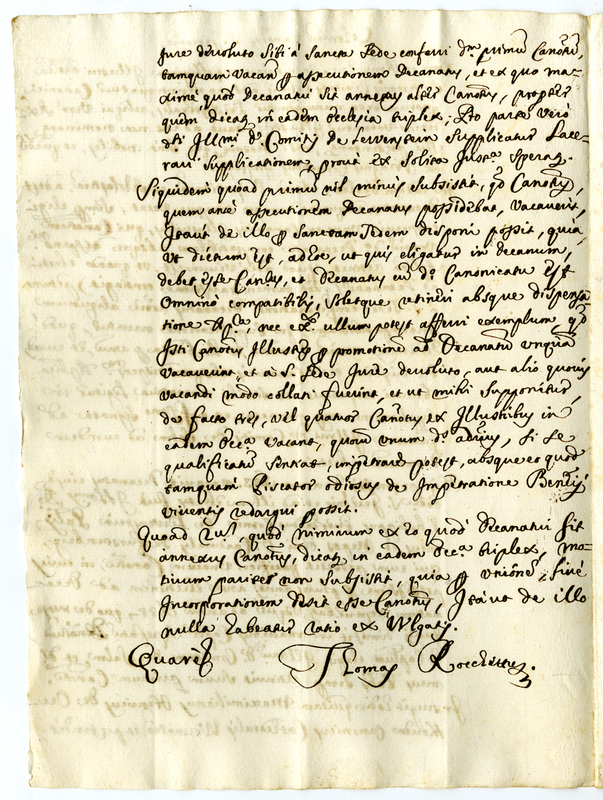 Jure devoluto sibi à Sancta Sede conferri d.m primũ Canõtũ,
tamquam vacañ ꝑ assecutionem Decanatus, et ex quo ma=
ximè quod Decanatui sit annexus alter Canõtus, propter
quem dicat̃ in eadem Ecclesia triplex; Pro parte verò
d̃ti Illmi D. Comitis de Levvenstein Supplicatur Lace=
rari Supplicationem, prout ex Solita Just.a Sperat̃.
Siquidem quoad primum nil minus Subsistit, q̃d Canõtus,
quem ante assecutionem Decanatus possidebat, vacaverit,
Itaut de illo ꝑ Sanctam Sedem disponi possit, quia
ut dictum est, ad ut quis eligatur in Decanum,
debet esse Can.cus, et Decanatus cũ d.o Canonicatu est
omninò compatibilis, Soletque retineri absque dispensa
tione Ap.ca, nec ullum potest afferri exemplum q̃d
Isti Canõtus Illustres ꝑ promotionẽ ad Decanatũ unquã
vacaverint, et à S. Sede Jure devoluto, aut alio quovis
vacandi modo collati fuerint, et ut mihi Supponitur,
de facto tres, vel quatuor Canõtus ex Illustribus in
eadem Ecc.a vacant, quorũ unum d.s adũus, si se
qualificatũ Sentiat, impetrare potest, absque eo quod
tamquam Piscator odiosus de Impetratione Benẽy
viventis redargui possit.
Quoad 2.m, quod nimirum ex eo quod Decanatui sit
annexus Canõtus, dicat̃ in eadem Ecc.a triplex, mo=
tivum pariter non Subsistit, quia ꝑ unionẽ, sive
Incorporationem desiit esse Canõtus, Itaut de illo
nulla habeatur ratio ex Vulgatis.
Quarè
Thomas